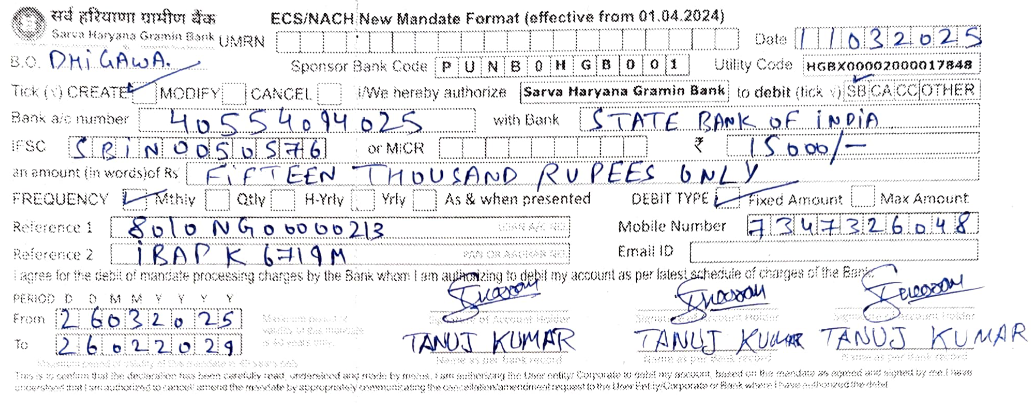 सर्व हरियाणा ग्रामीण बैंक ECS/NACH New Mandate Format (effective from 01.04.2024)
Sarva Haryana Gramin Bank UMRN Date 11032025
B.O. DHIGAWA. Sponsor Bank Code PUNB0HGB001 Utility Code HGBX00002000017848
Tick (√) CREATE ✓ MODIFY CANCEL I/We hereby authorize Sarva Haryana Gramin Bank to debit (tick √) SB CA CC OTHER
Bank a/c number 40554094025 with Bank STATE BANK OF INDIA
IFSC SBIN0050576 or MICR ₹ 15000/-
an amount (in words) of Rs FIFTEEN THOUSAND RUPEES ONLY
FREQUENCY ✓ Mthly Qtly H-Yrly Yrly As & when presented DEBIT TYPE ✓ Fixed Amount Max Amount
Reference 1 8010NG00000213 LOAN A/C NO Mobile Number 7347326048
Reference 2 IBAPK6719M PAN OR AADHAR NO Email ID
I agree for the debit of mandate processing charges by the Bank whom I am authorizing to debit my account as per latest schedule of charges of the Bank.
PERIOD D D M M Y Y Y Y
From 26032025 Signature of Account Holder
To 26022029 TANUJ KUMAR TANUJ KUMAR TANUJ KUMAR
Name as per bank record Name as per Bank record Name as per Bank record
This is to confirm that the declaration has been carefully read, understood and made by me/us. I am authorizing the User entity/Corporate to debit my account, based on the mandate as agreed and signed by me. I have
understood that I am authorized to cancel/amend the mandate by appropriately communicating the cancellation/amendment request to the User Entity/Corporate or Bank where I have authorized the debit